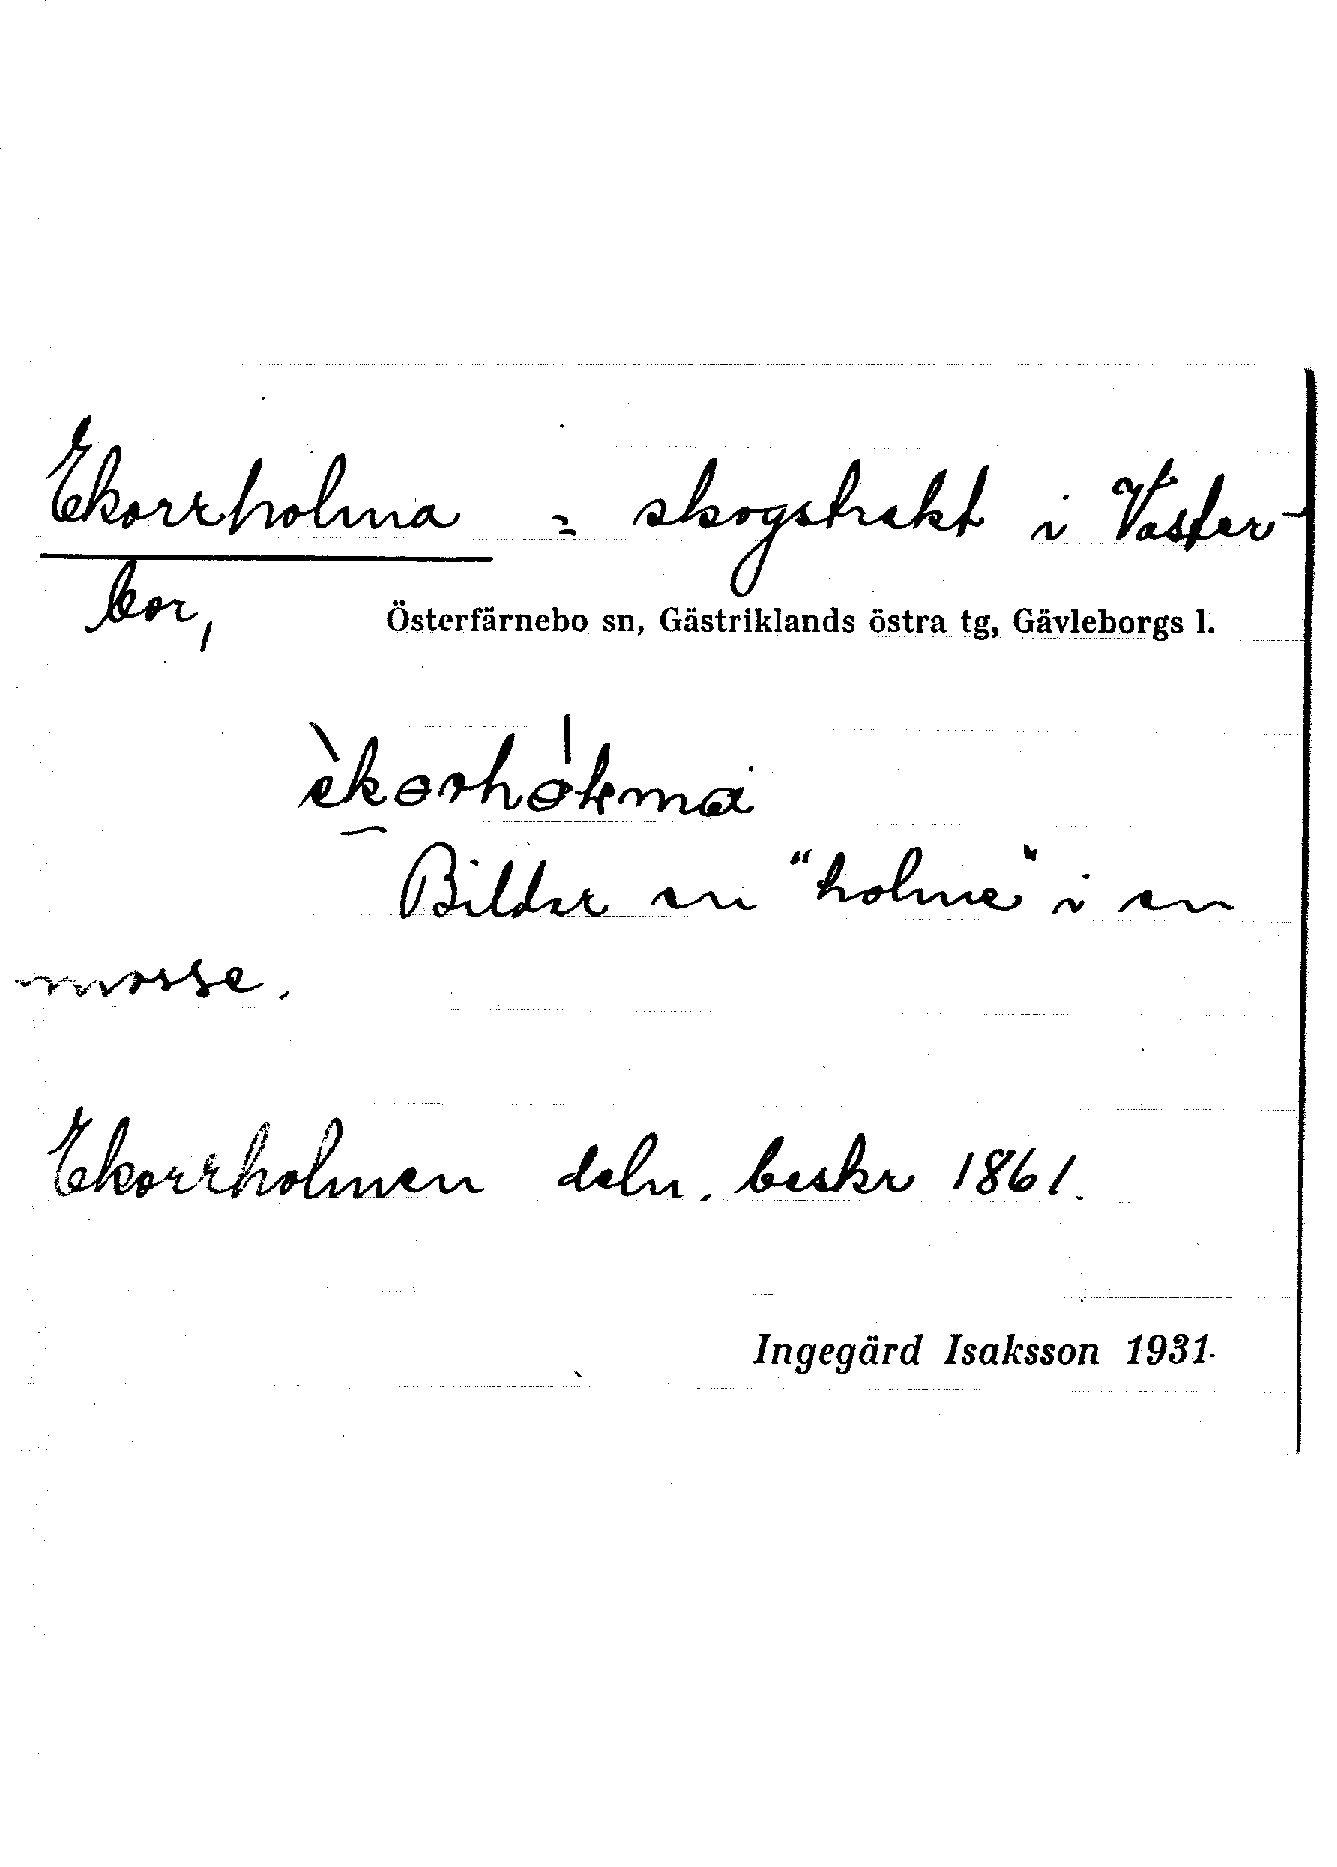 Ekorrholma = skogstrakt i Väster-
bor,
Österfärnebo sn, Gästriklands östra tg, Gävleborgs l.
èkɵrhɵ́lma
Bildar en "holme" i en
mosse.
Ekorrholmen deln. beskr 1861.
Ingegärd Isaksson 1931.